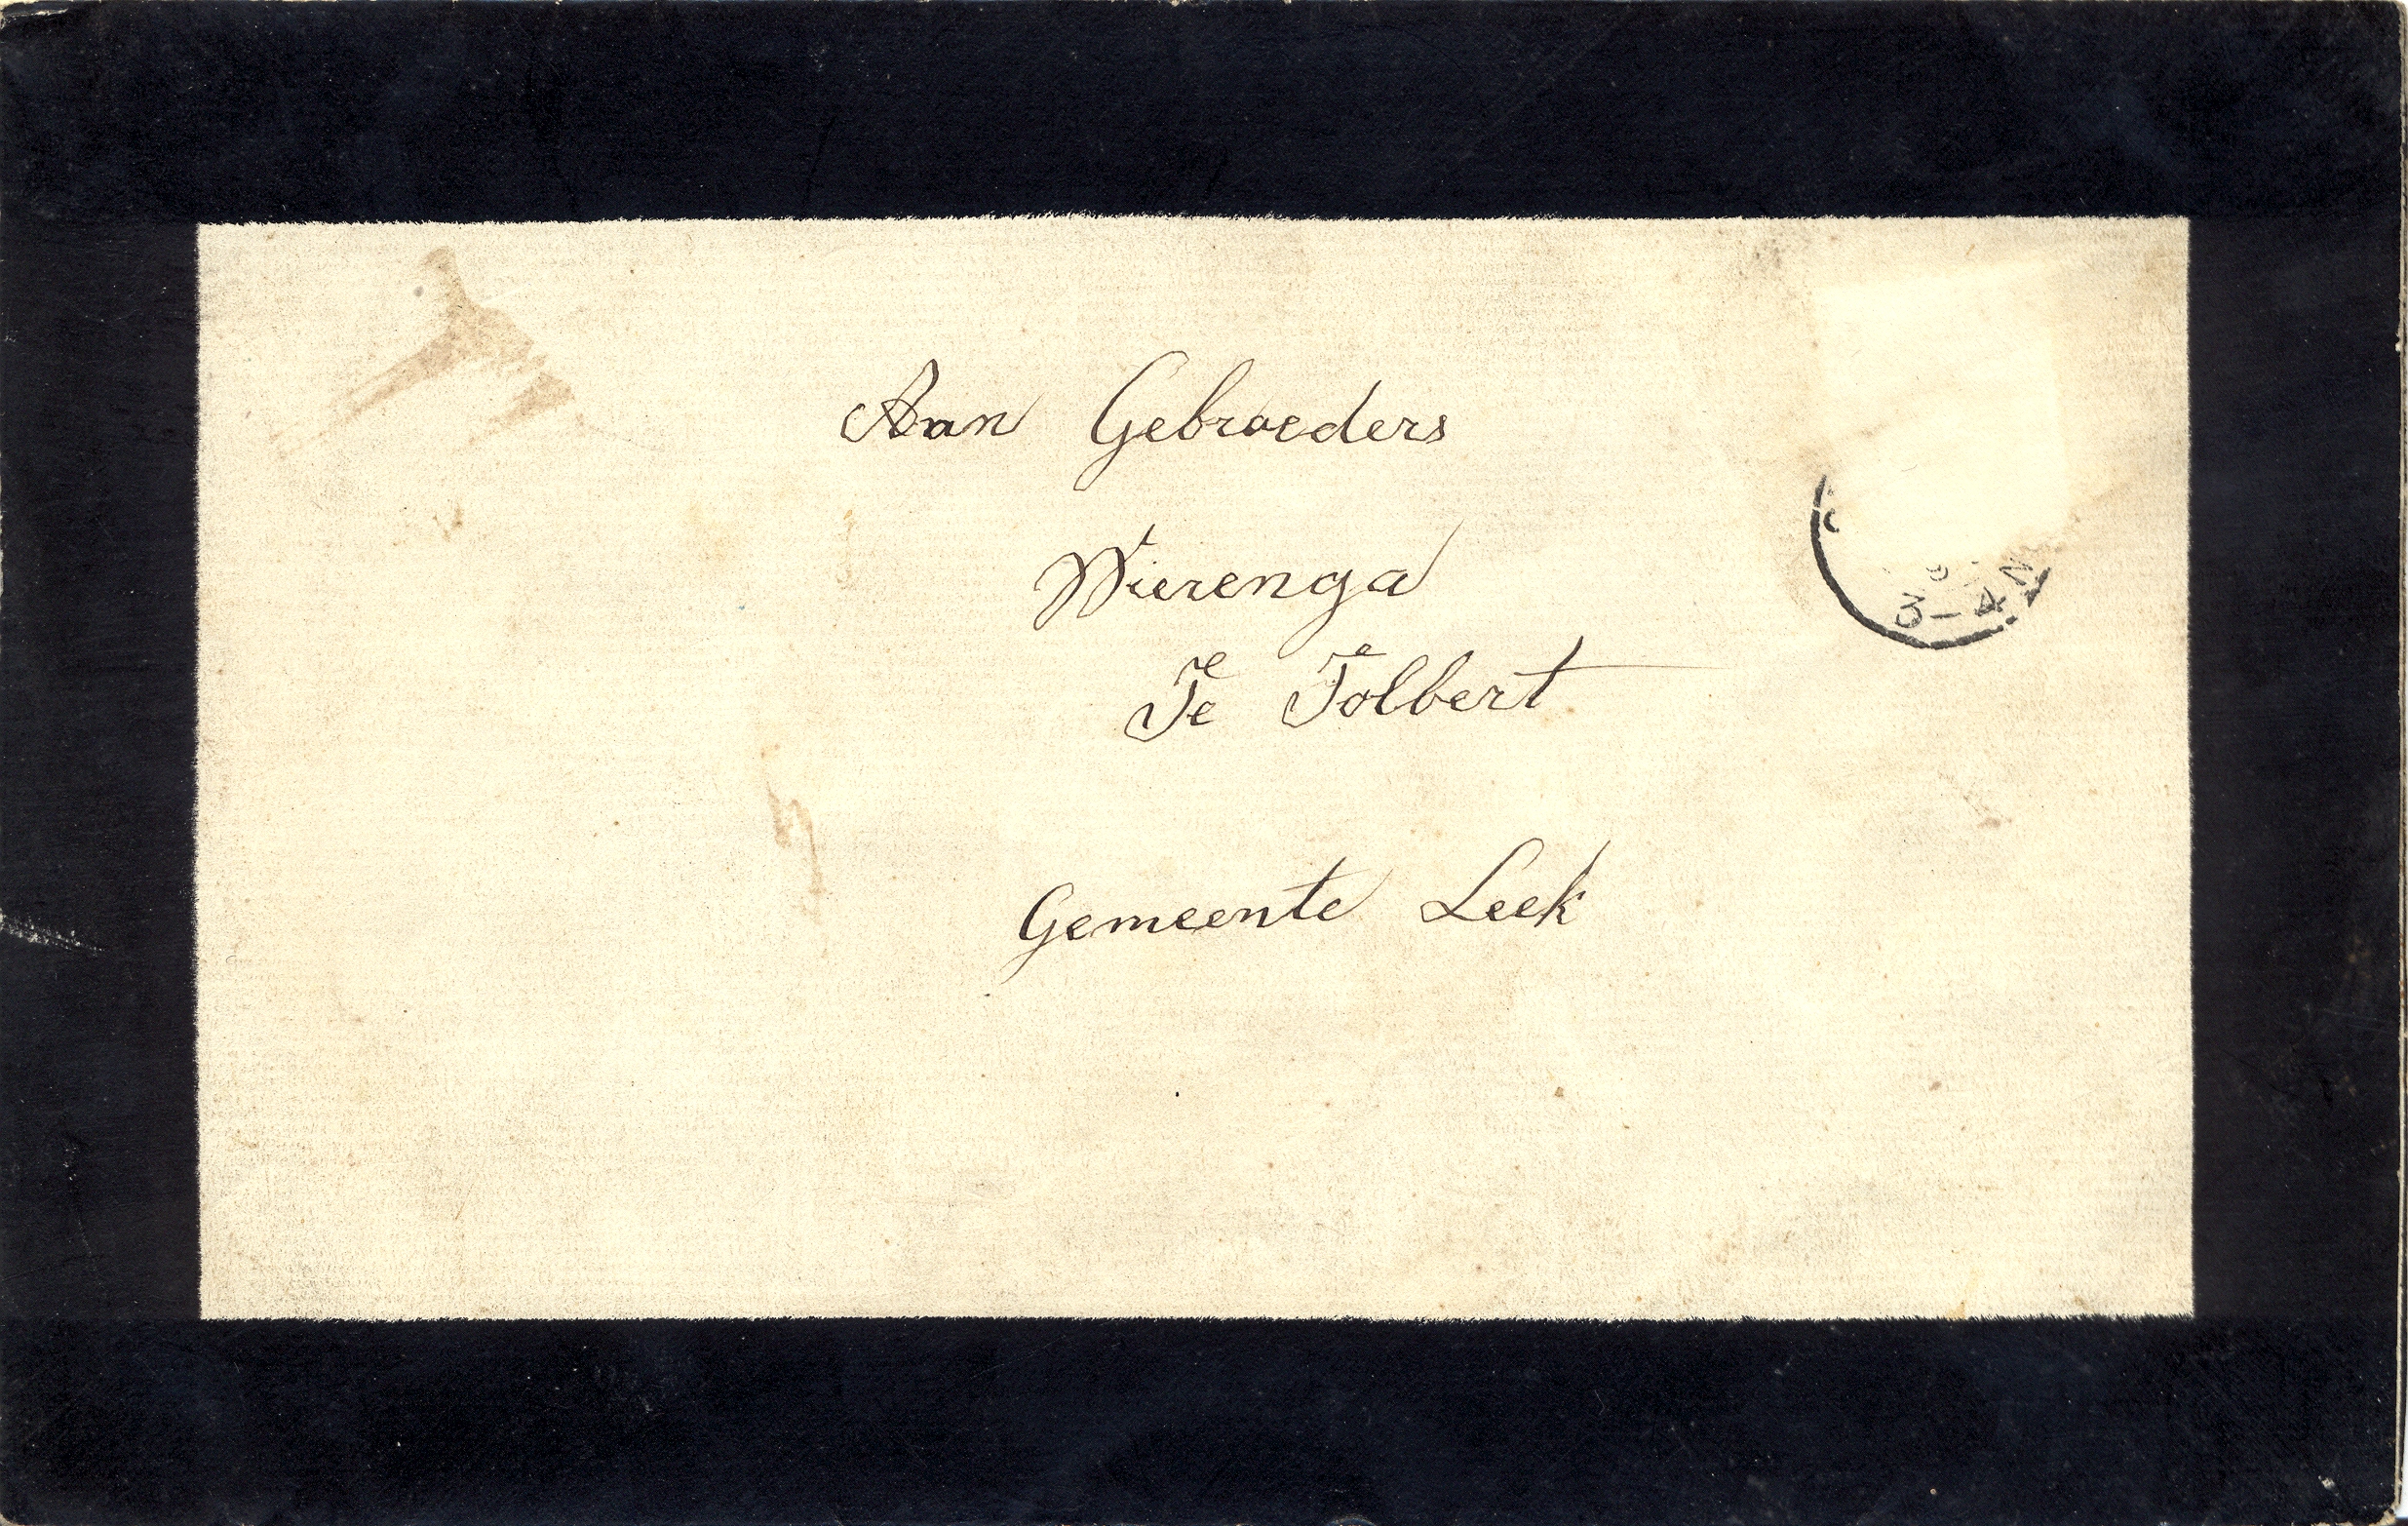 Aan Gebroeders
Wierenga
Te Tolbert
Gemeente Leek
3-4 N